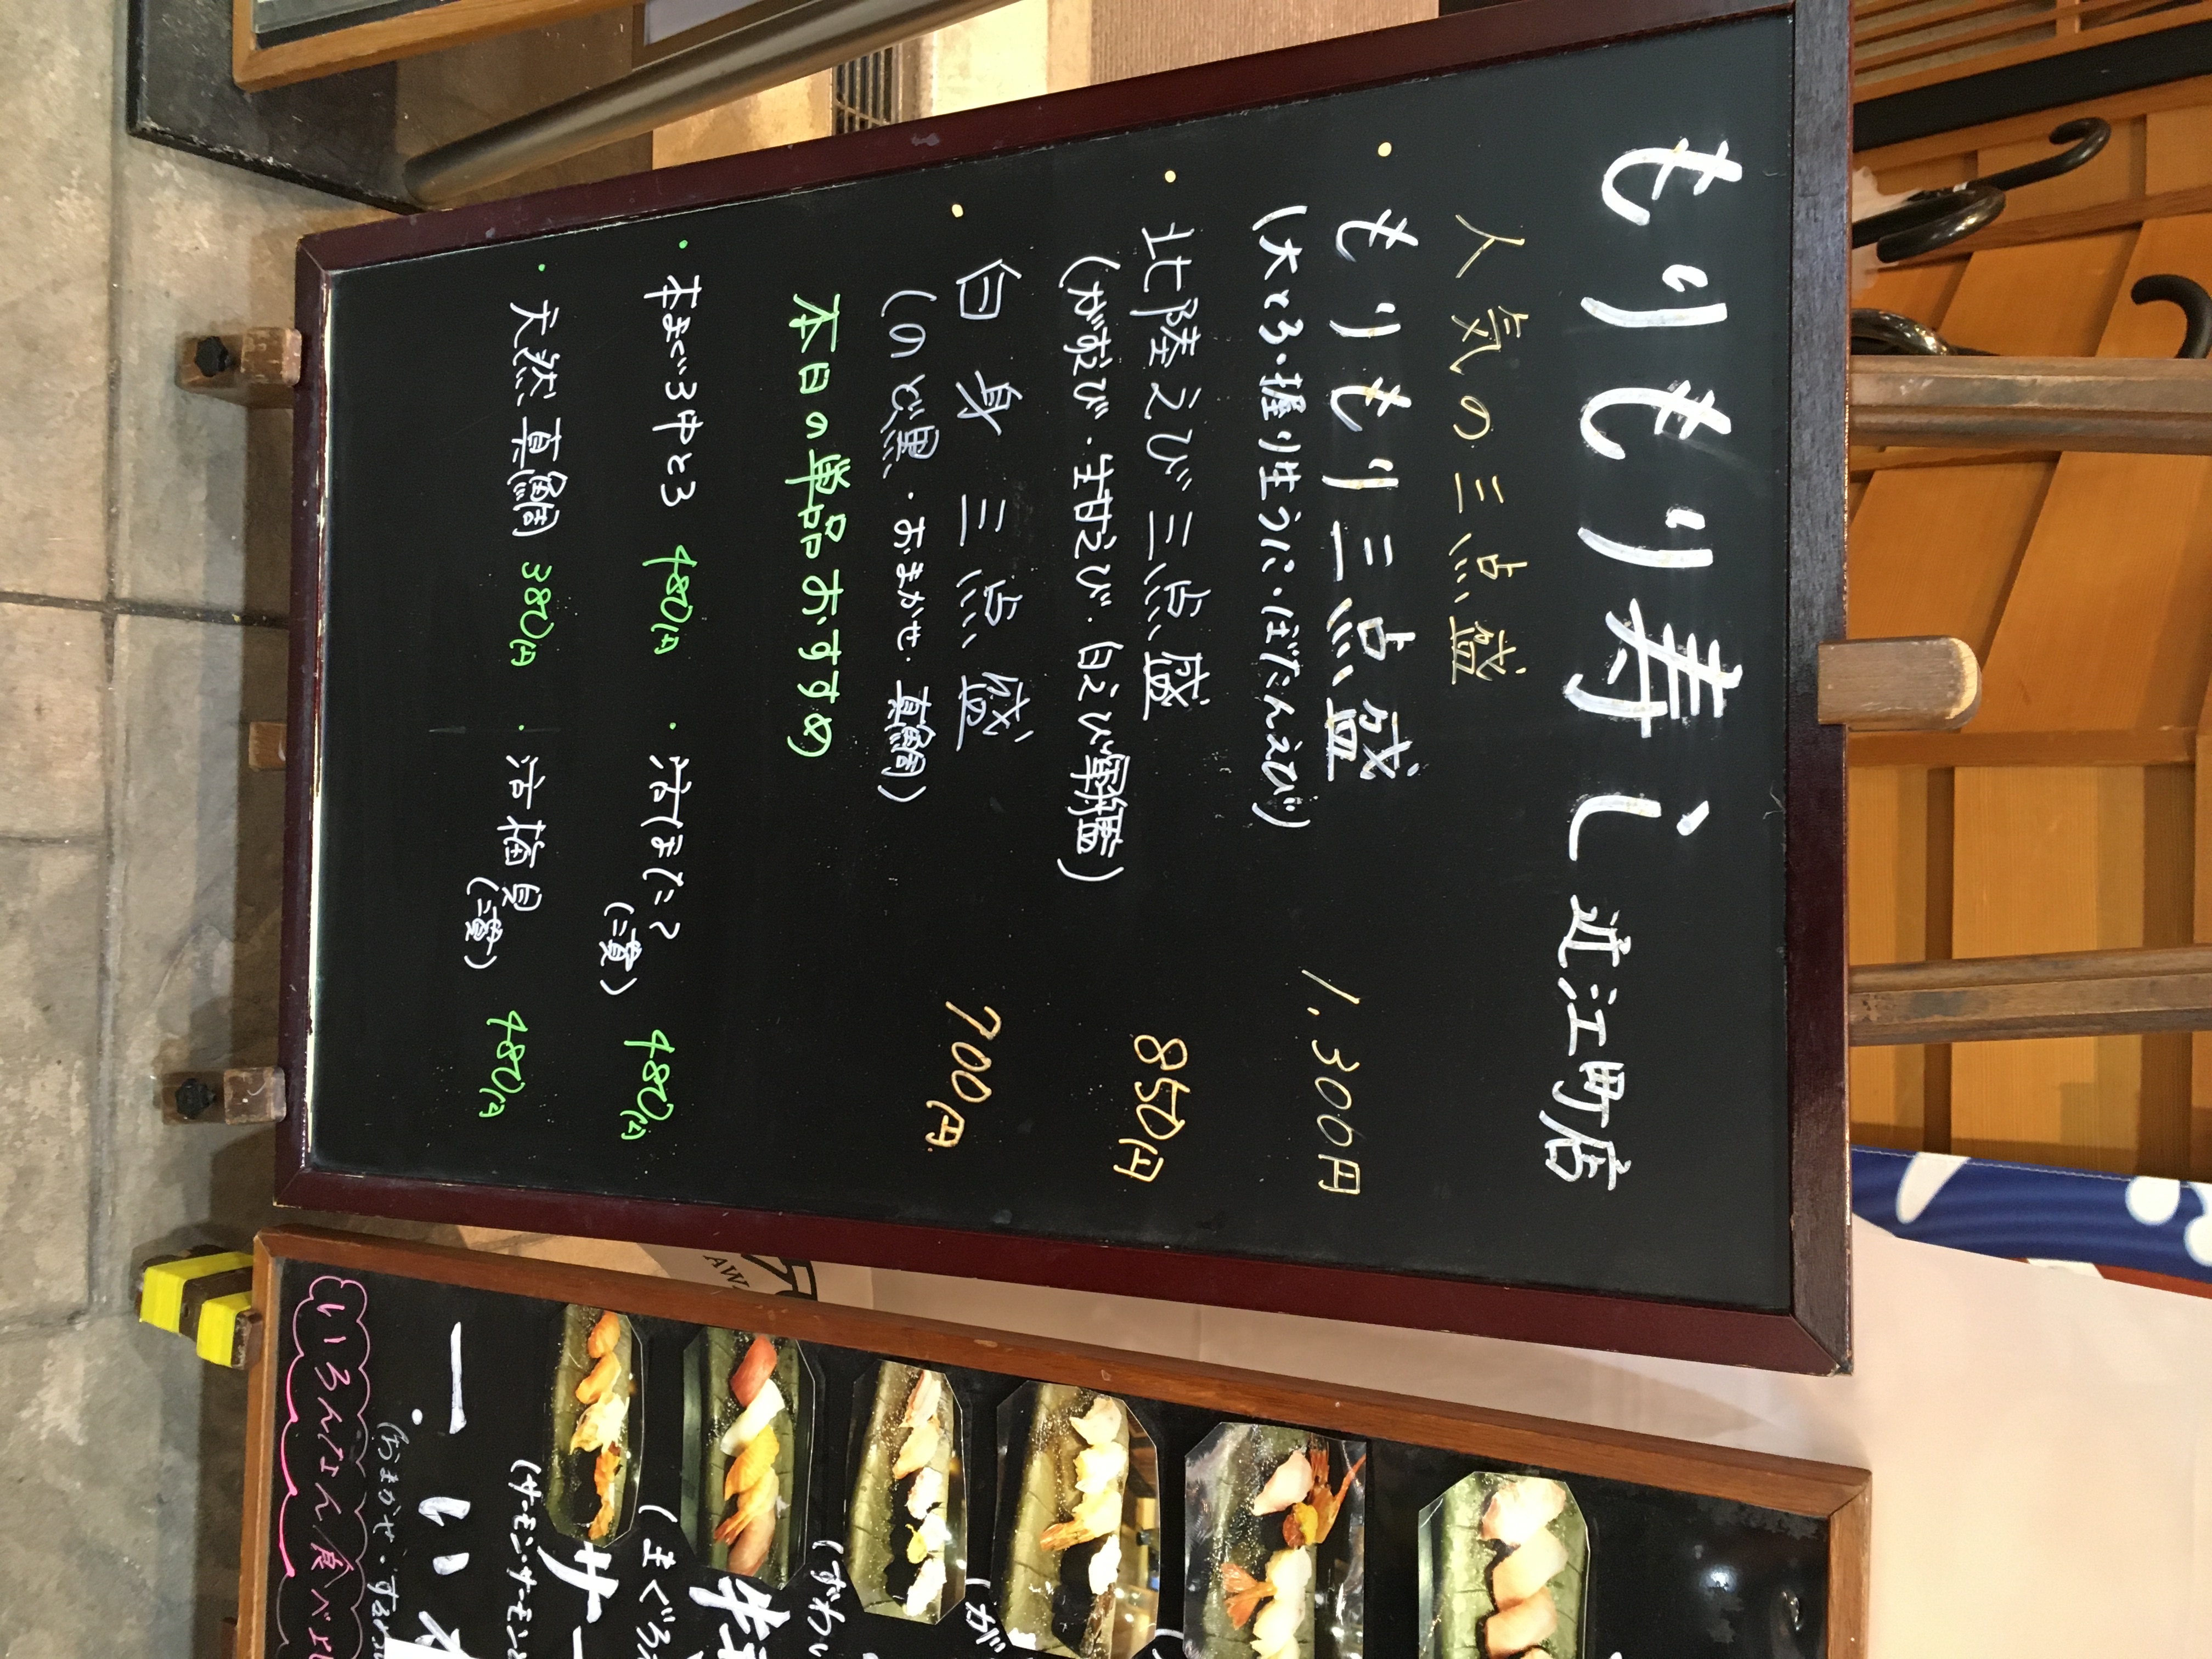 もりもり寿し 近江町店
人気の三点盛
・もりもり三点盛 1,300円
(大とろ・握り生うに・ぼたんえび)
・北陸えび三点盛 850円
(がすえび・生甘えび・白えび軍艦)
・白身三点盛 700円
(のど黒・おまかせ・真鯛)
本日の単品おすすめ
・本まぐろ中とろ 480円 ・活ほたて (二貫) 480円
・天然真鯛 380円 ・活梅貝 (二貫) 480円
(がす
(ずわい
(まぐろ
サー
(サーモン・サーモン
一、い
(おまかせ・する
いろんにん食べ
AW